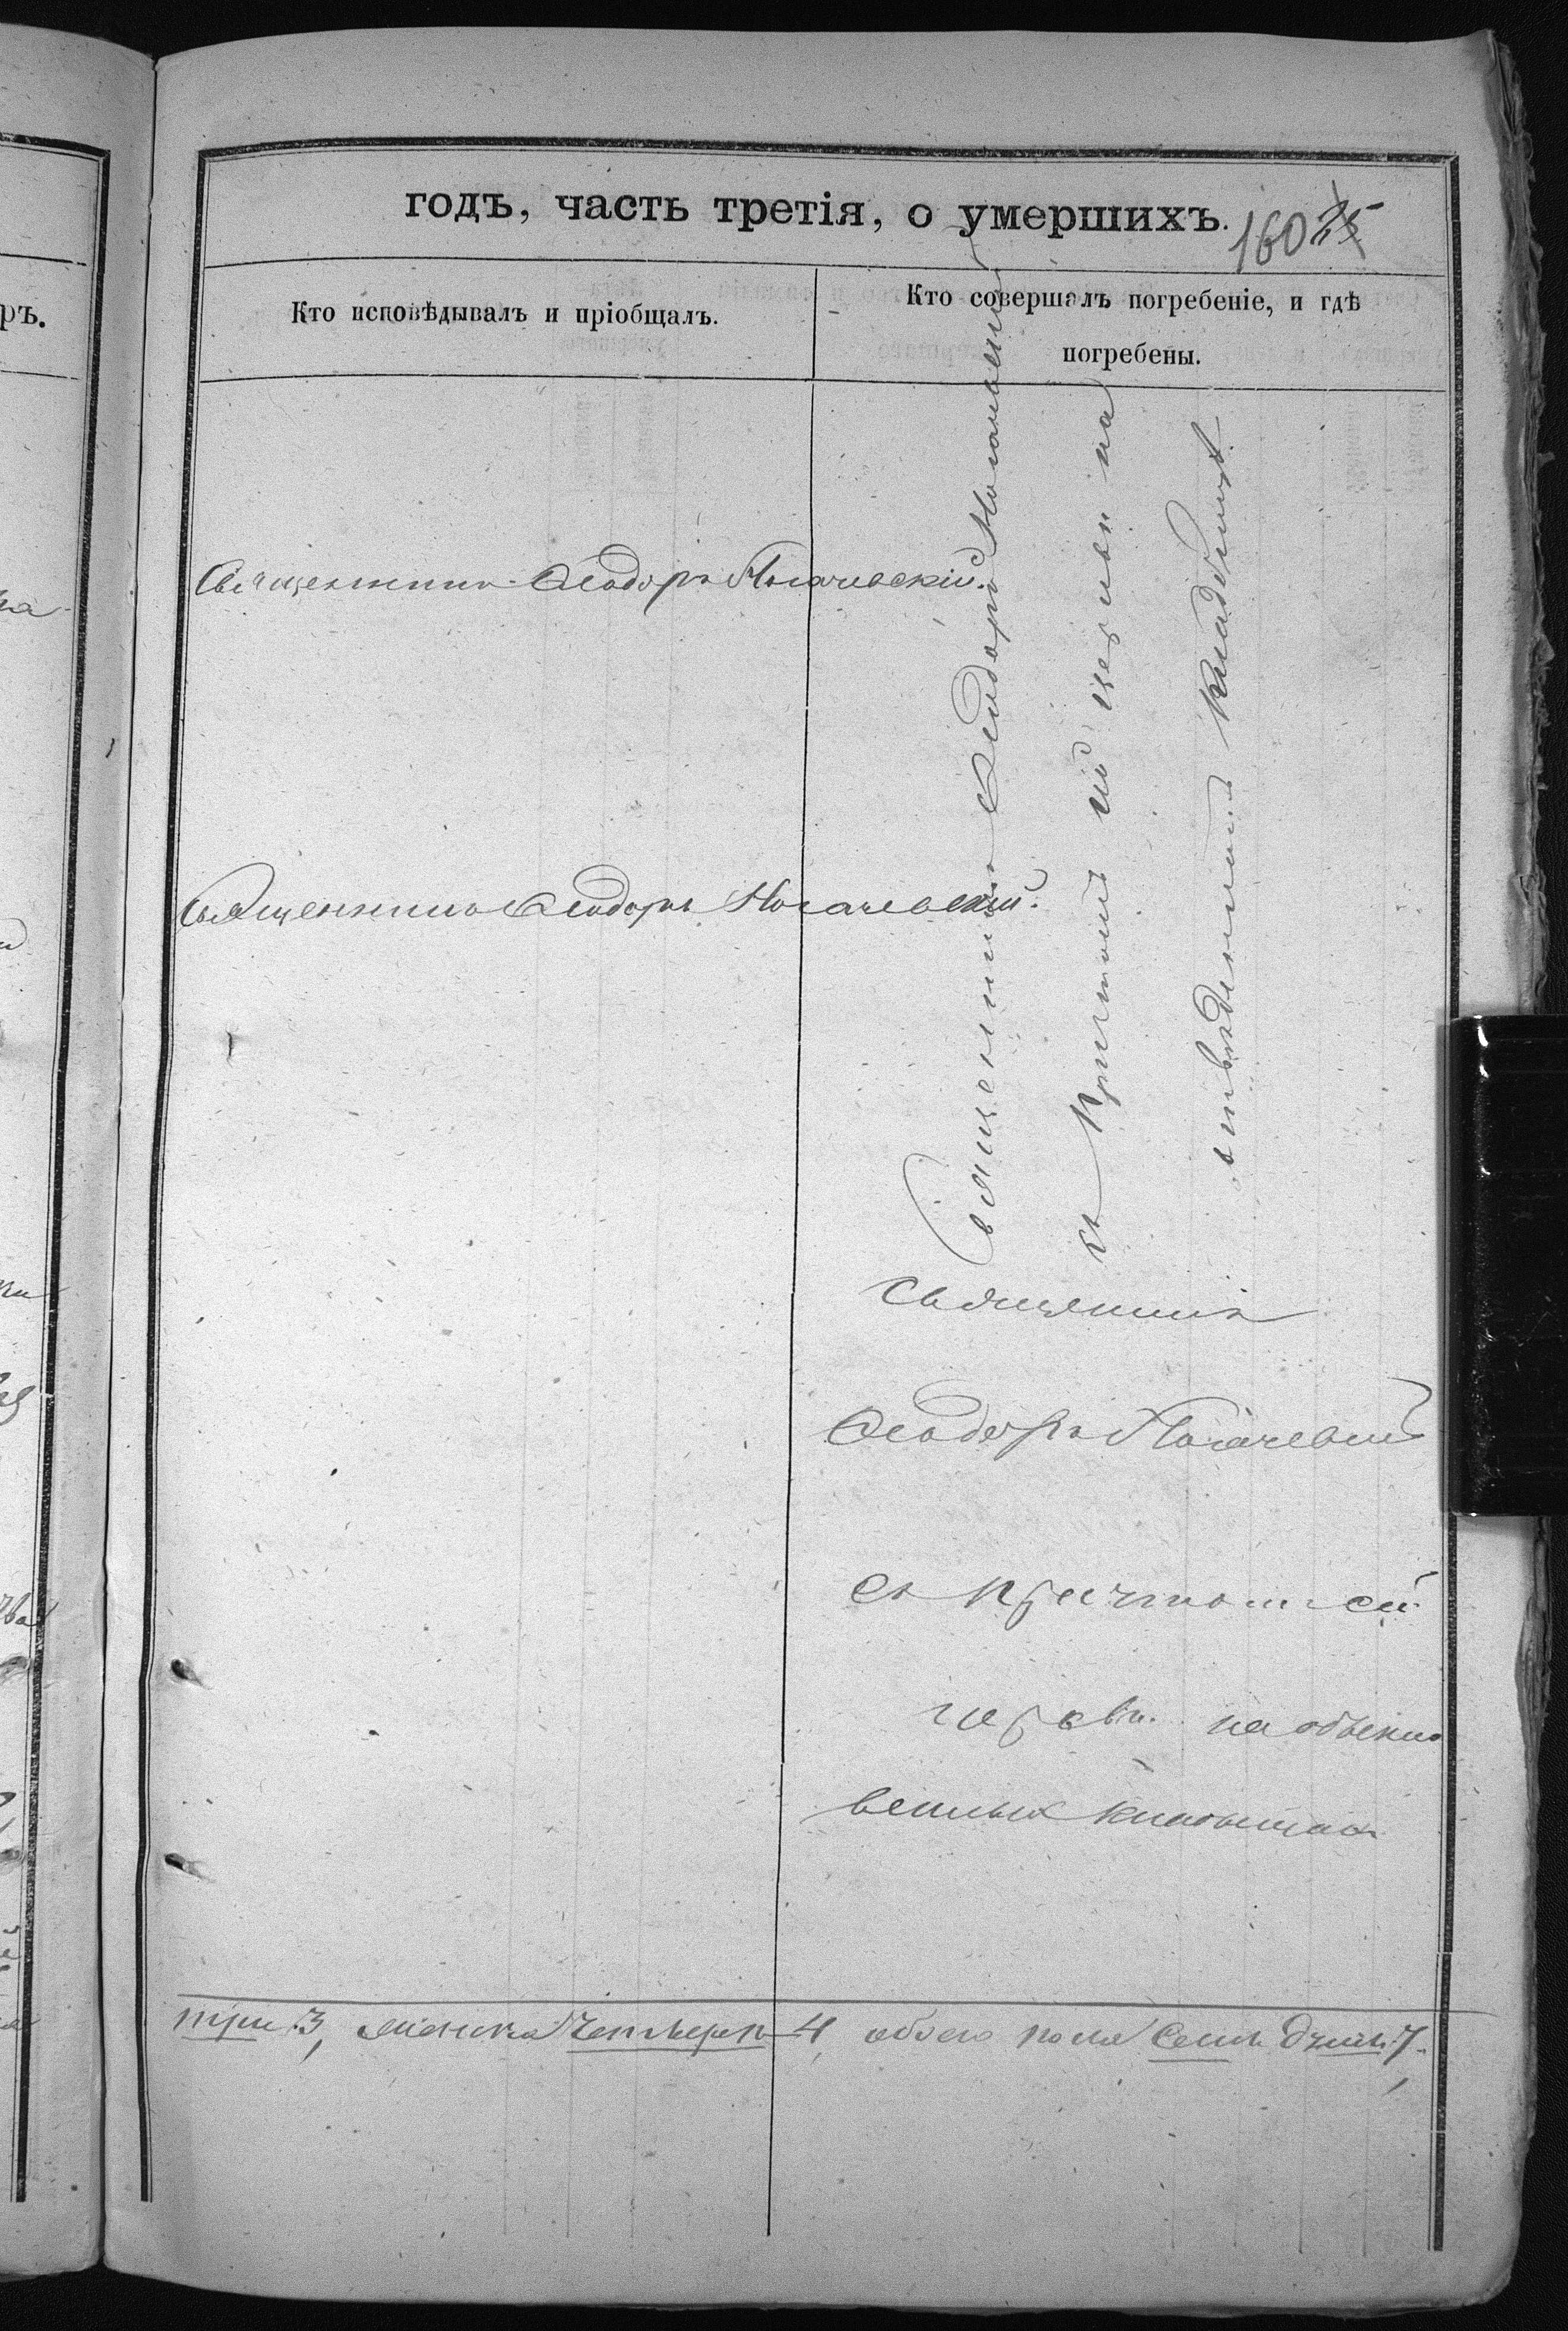 годъ, часть третія, о умершихъ.
160 25
Кто исповѣдывалъ и пріобщалъ.
Кто совершалъ погребеніе, и гдѣ
погребены.
Священникъ Ѳеодоръ Ногачевскій.
Священникъ Ѳеодоръ Ногачевскій.
Священникъ Ѳеодоръ Ногачевскій
съ Причтомъ сей церкви на
отведенномъ кладбищѣ.
Священникъ
Ѳеодоръ Ногачевскій
съ причтомъ сей
церкви на обыкно
венныхъ кладбищахъ
три 3, женска четыре 4, обоего пола семь душъ 7.
ръ.